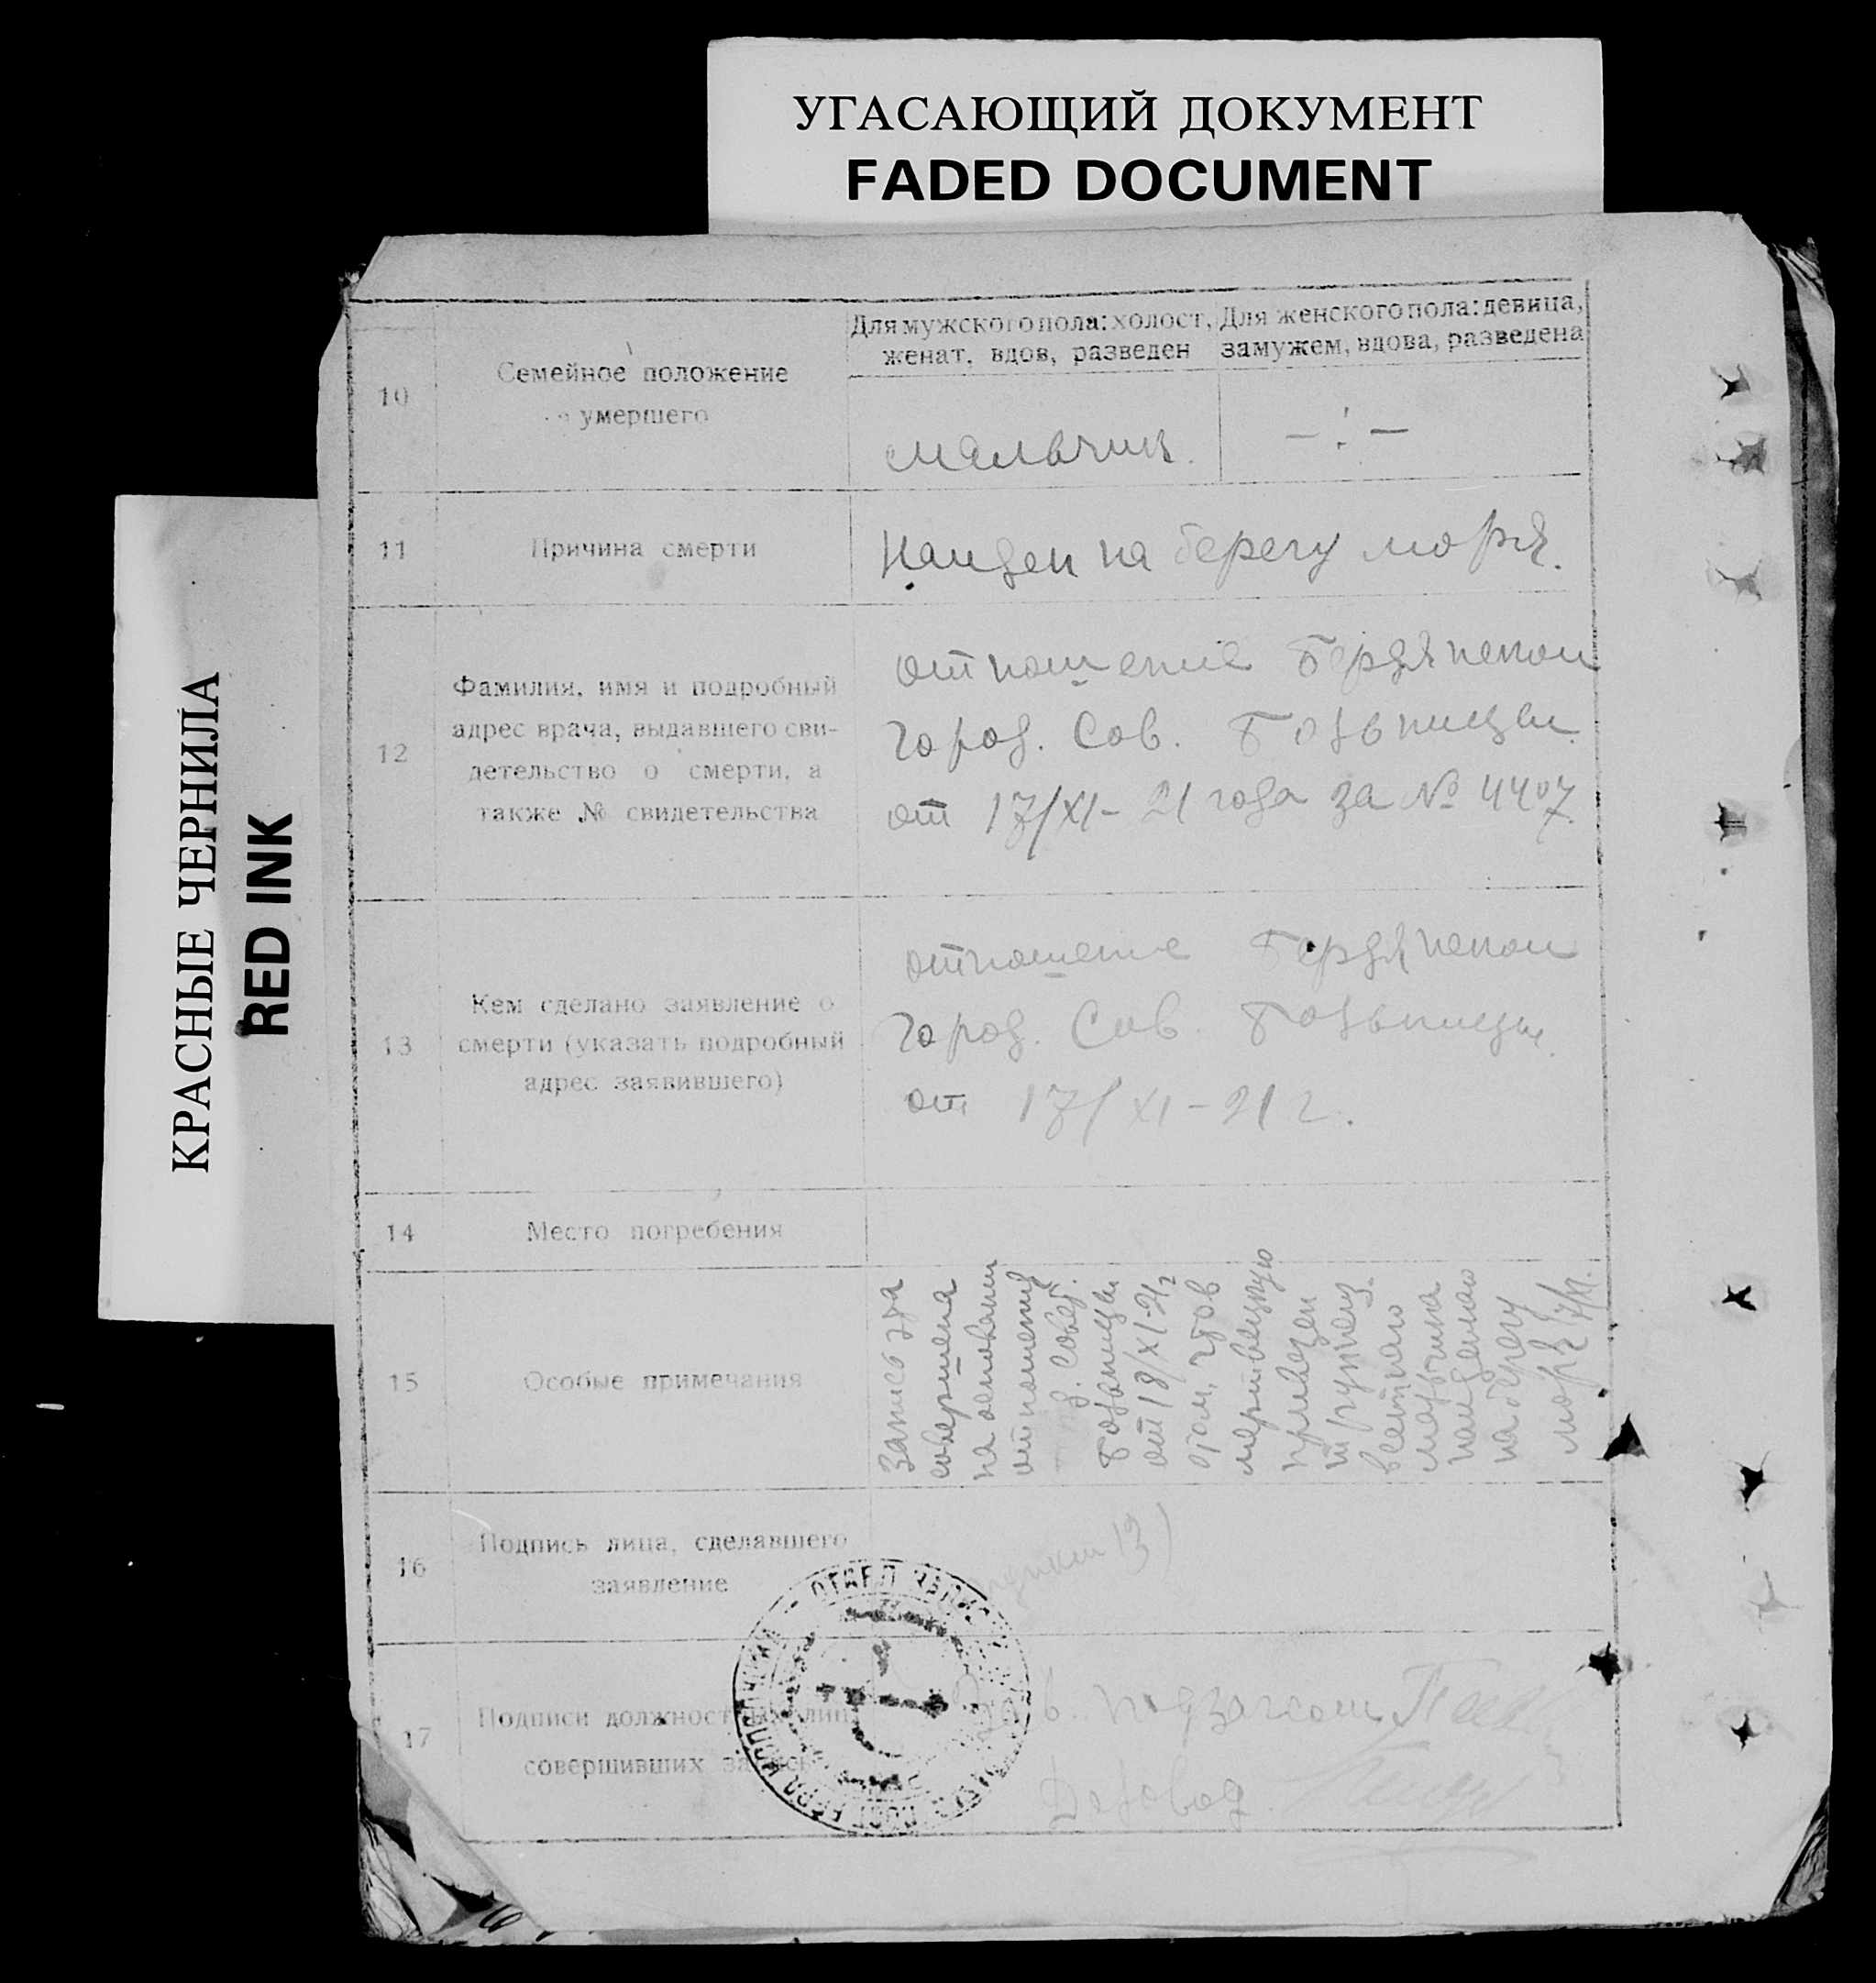 УГАСАЮЩИЙ ДОКУМЕНТ
FADED DOCUMENT
КРАСНЫЕ ЧЕРНИЛА
RED INK
10
Семейное положение
умершего
Для мужского пола: холост,
женат, вдов, разведен
Для женского пола: девица,
замужем, вдова, разведена
мальчик.
11
Причина смерти
Найден на берегу моря.
12
Фамилия, имя и подробный
адрес врача, выдавшего сви-
детельство о смерти, а
также № свидетельства
отношение Бердянской
город. Сов. Больницы
от 17/XI-21 года за № 4407.
13
Кем сделано заявление о
смерти (указать подробный
адрес заявившего)
отношение Бердянской
город. Сов. Больницы.
от 17/XI-21 г.
14
Место погребения
15
Особые примечания
Запись эта
совершена
на основании
отношения
Больницы
от 18/XI-21
о том, что в
мертвецкую
привезен
труп
мальчика
найденного
на берегу
моря 17/XI.
16
Подпись лица, сделавшего
заявление
17
Подписи должност лиц
совершивших
Зав. подзагсом
Деловод